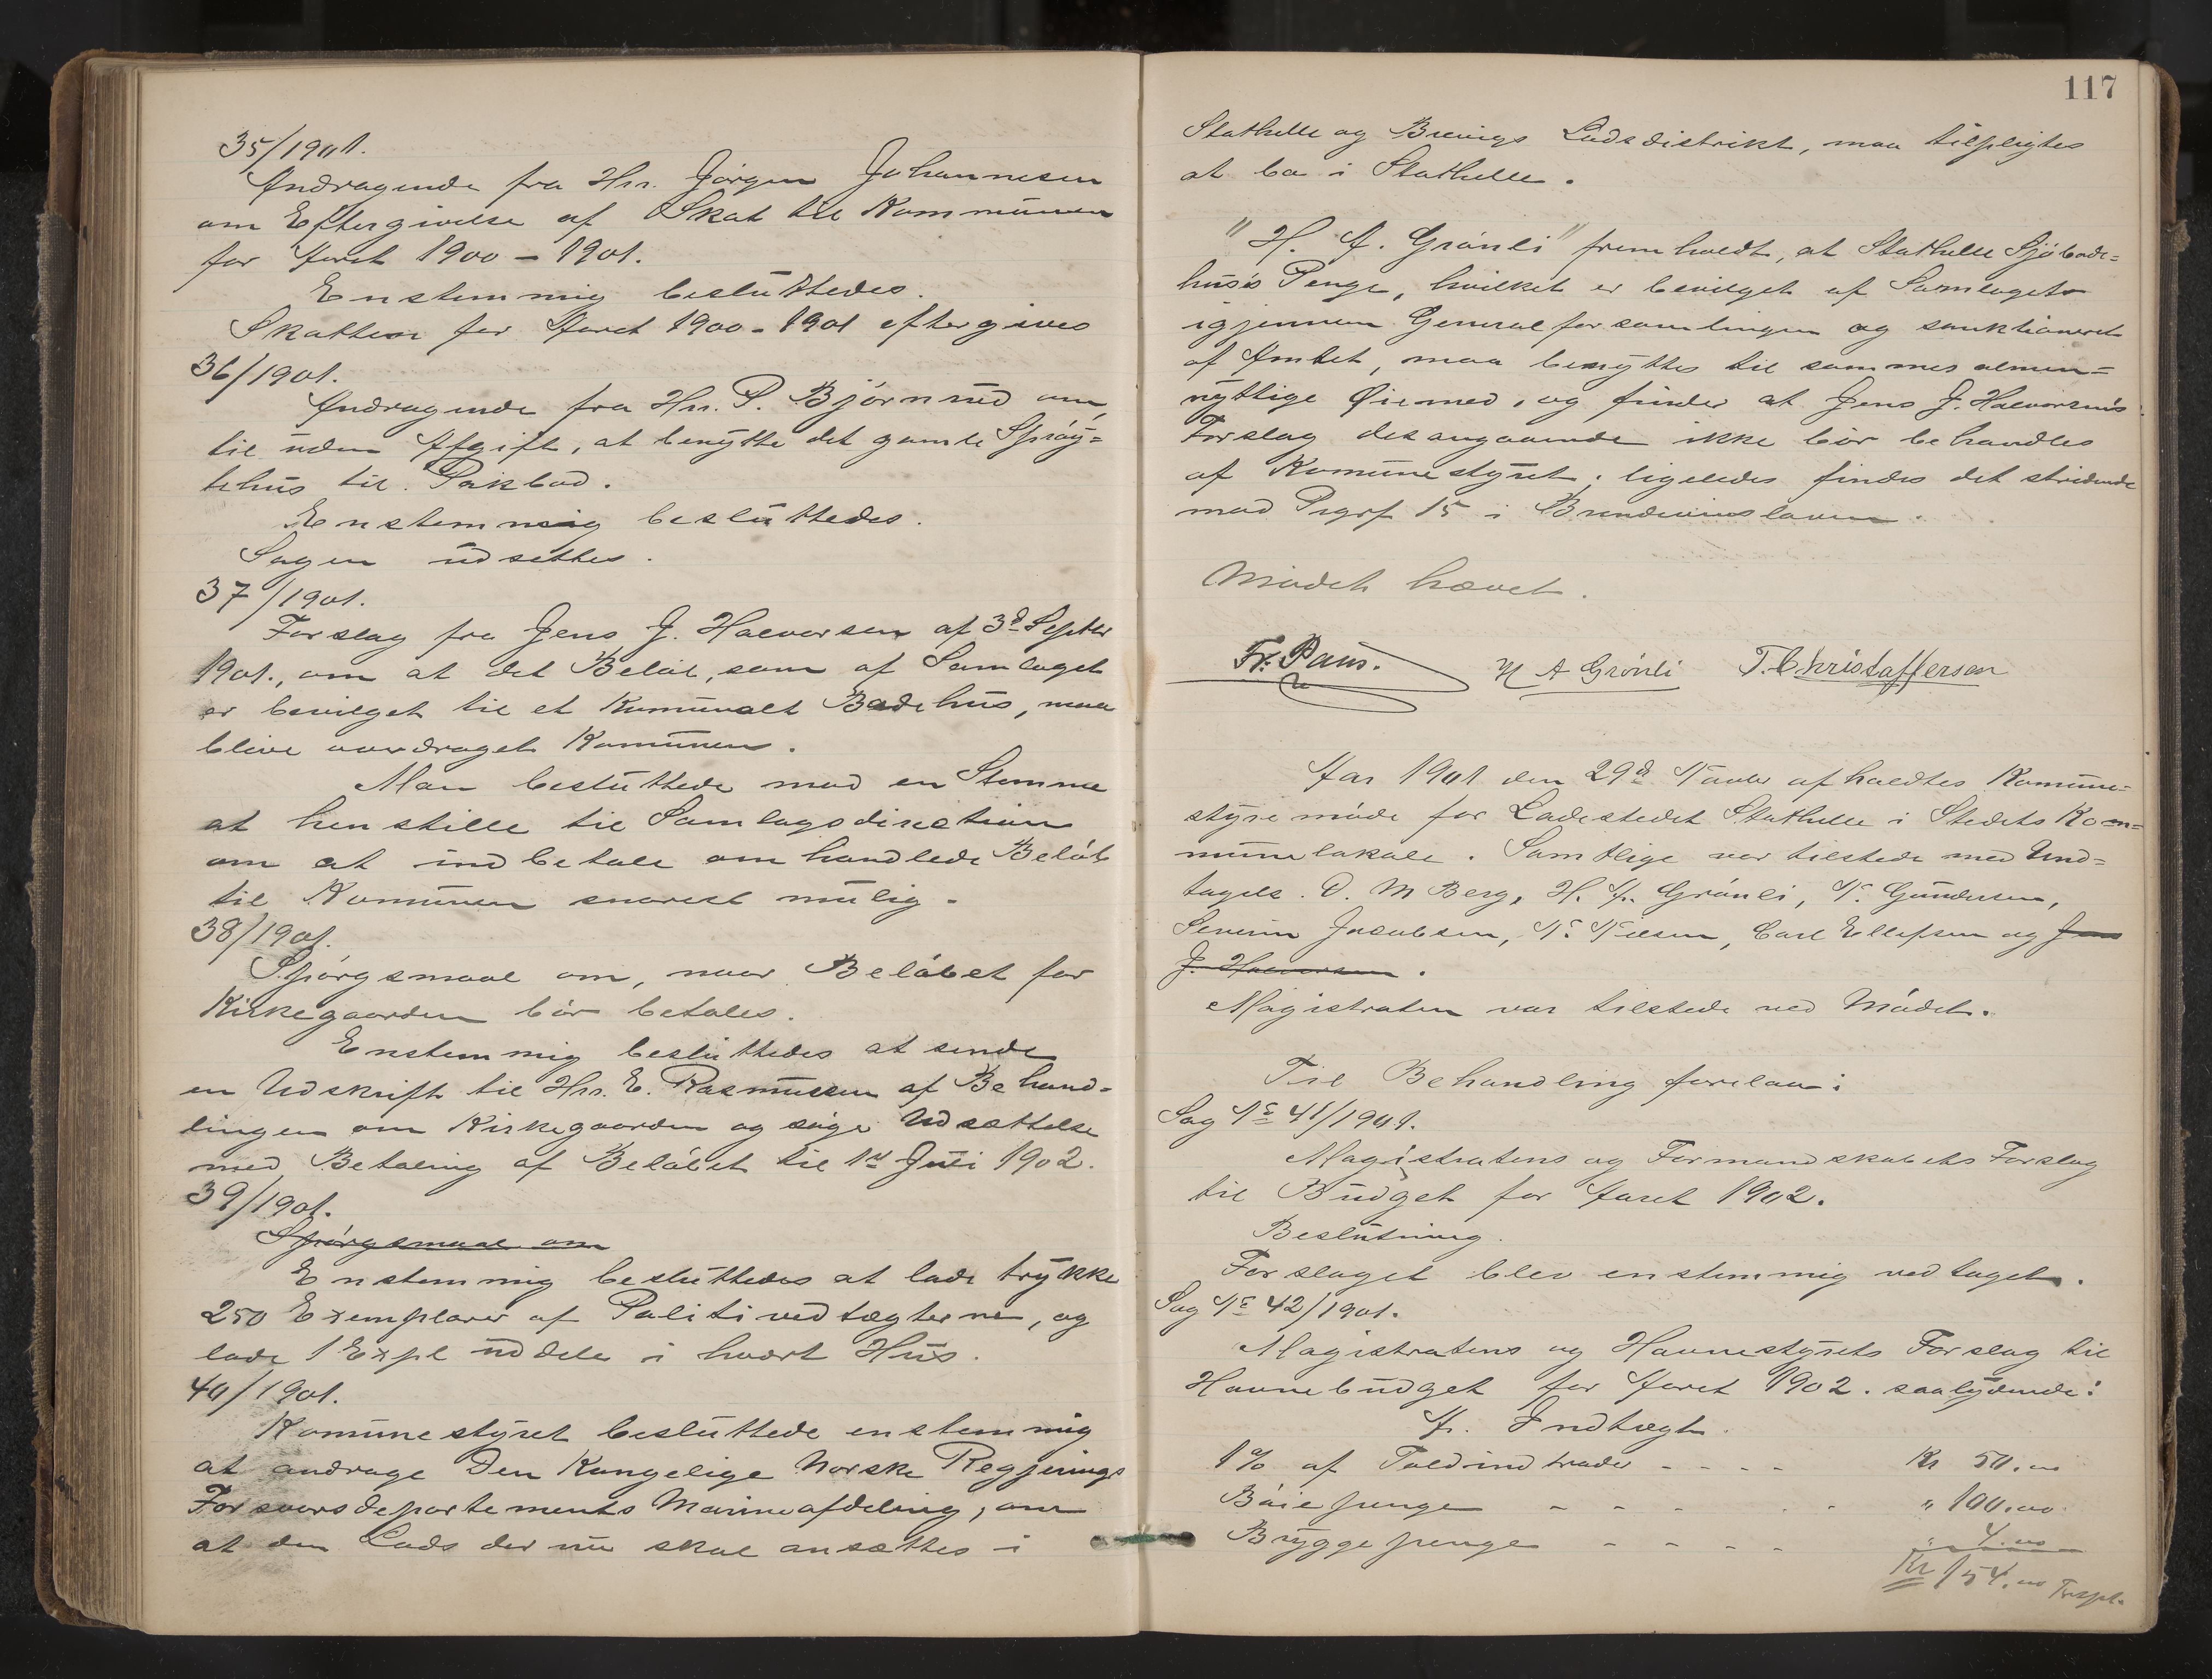 35/1901.
Andragende fra Hrr. Jörgen Johannesen
om Eftergivelse af Skat til Kommunen
for Aaret 1900 - 1901.
Enstemmig besluttedes.
Skatten for Aaret 1900 - 1901 eftergives
36/1901.
Andragende fra Hrr. P. Björnrud om,
til uden Afgift, at benytte det gamle Spröy=
tehus til Pakbod.
Enstemmig besluttedes.
Sagen udsettes.
37/1901.
Forslag fra Jens J. Halvorsen af 3d Septbr
1901., om at det Belöb, som af Samlaget
er bevilget til et Kumunalt Badehus, maa
blive overdraget Komunen.
Man besluttede med en Stemme
at henstille til Samlagsdirektion
om at indbetale omhandlede Belöb
til Komunen snarest mulig.
38/1901.
Spörgsmaal om, naar Belöbet for
Kirkegaarden bör betales.
Enstemmig besluttedes at sende
en Udskrift til Hrr. E. Rasmussen af Behand=
lingen om Kirkegaarden og söge Udsættelse
med Betaling af Belöbet til 1st Juli 1902.
39/1901.
Spörgsmaal om
Enstemmig besluttedes at lade trykke
250 Exemplarer af Politivedtægterne, og
lade 1 Expl uddele i hvert Hus.
40/1901.
Komunestyret besluttede enstemmig
at andrage Den Kongelige Norske Regjerings
Forsvarsdepartements Marineafdeling, om
at den Lods der nu skal ansættes i
117
Stathelle og Brevigs Lodsdistrikt, maa tilpligtes
at bo i Stathelle.
"H. A. Grönli" fremholdt, at Stathelle Sjöbade=
hus's Penge, hvilket er bevilget af Samlaget
igjennem Generalforsamlingen og sanktioneret
af Amtet, maa benyttes til sammes almen=
nyttige Øiemed, og finder at Jens J. Halvorsens
Forslag desangaaende ikke bör behandles
af Komunestyret; ligeledes findes det stridende
mod Prgrf 15 i Brændevinsloven.
Mödet hævet.
Fr. Paus. H A Grönli T. Christoffersen
Aar 1901 den 29d Novbr afholdtes Komune=
styremöde for Ladestedet Stathelle i Stedets Kom=
munelokale. Samtlige var tilstede med Und=
tagels. D. M Berg, H. A. Grönli, N. Gundersen,
Severin Jacobsen, N. Nilsen, Carl Ellefsen og Jens
J. Halvorsen.
Magistraten var tilstede ved Mödet.
Til Behandling forelaa:
Sag No 41/1901.
Magistratens og Formandskabets Forslag
til Budget for Aaret 1902.
Beslutning.
Forslaget blev enstemmig vedtaget.
Sag No 42/1901.
Magistratens og Havnestyrets Forslag til
Havnebudget for Aaret 1902. saalydende:
A. Indtægt.
1% af Toldindtrader - - - - Kr 50.00
Böiepenge - - - - - " 100.00
Bryggepenge - - - - " 4.00
Kr 154.00 Trspt.